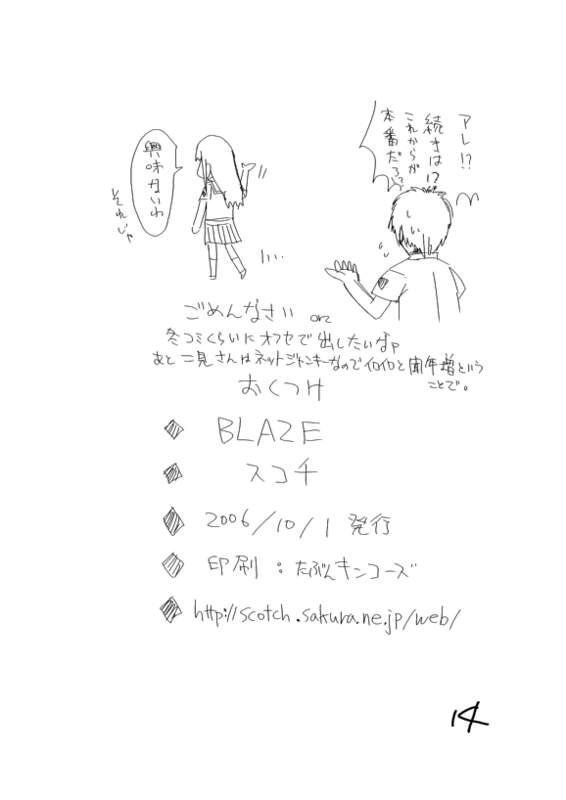 アレ!?
続きは!?
これからが
本番だろ!?
興味ないわ
それじゃ
ごめんなさい orz
冬コミくらいにオフセで出したいなァ
あと二見さんはネットジャンキーなのでイロイロと
ということで。
おくつけ
BLAZE
スコチ
2006/10/1 発行
印刷：たぶんキンコーズ
http://scotch.sakura.ne.jp/web/